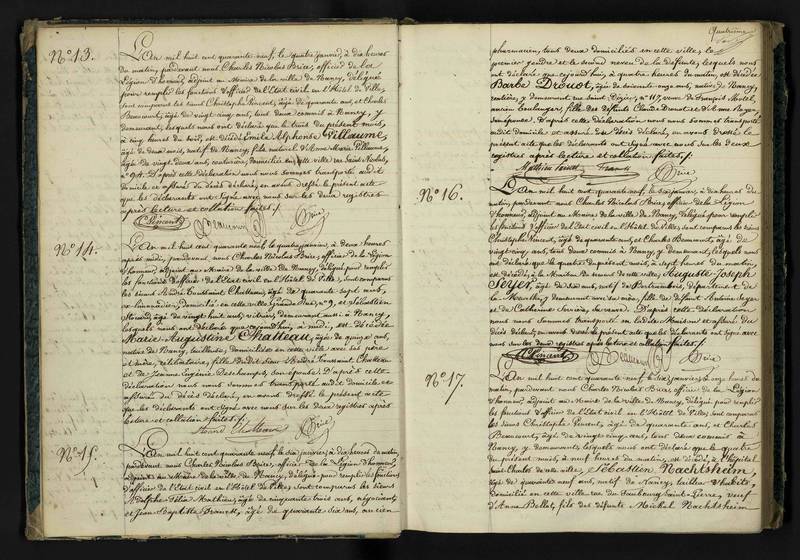 N° 13.
L'an mil huit cent quarante neuf, le quatre janvier, à dix heures
du matin, pardevant nous Charles Nicolas Brice, officier de la
Légion d'honneur, adjoint au Maire de la ville de Nancy, délégué
pour remplir les fonctions d'officier de l'Etat civil en l'Hôtel de Ville,
sont comparus les sieurs Christophe Vincent, âgé de quarante ans, et Charles
Beaucourt, âgé de vingt cinq ans, tous deux commis à Nancy, y
demeurant, lesquels nous ont déclaré que le trois du présent mois,
à cinq heures du soir, est décédé Emile Alphonse Villaume,
âgé de deux mois, natif de Nancy, fils naturel d'Anne Marie Villaume,
âgée de vingt deux ans, couturière, domiciliée en cette ville rue Saint Nicolas,
n° 94. D'après cette déclaration nous nous sommes transporté audit
domicile et assuré du décès déclaré, en avons dressé le présent acte
que les déclarants ont signé avec nous sur les deux registres
après lecture et collation faites ./.
C. Vincent Beaucourt Brice
N° 14.
L'an mil huit cent quarante neuf, le quatre janvier, à deux heures
après midi, pardevant nous Charles Nicolas Brice, officier de la Légion
d'honneur, adjoint au Maire de la ville de Nancy, délégué pour remplir
les fonctions d'officier de l'Etat civil en l'Hôtel de Ville, sont comparus
les sieurs André Toussaint Chatteau, âgé de quarante sept ans,
domicilié en cette ville Grande Rue, n° 9, et Sébastien
âgé de vingt huit ans, vitrier, demeurant aussi à Nancy,
lesquels nous ont déclaré que cejourd'hui, à midi, est décédée
Marie Augustine Chatteau, âgée de quinze ans,
native de Nancy, tailleuse, domiciliée en cette ville avec ses père
et mère, célibataire, fille dudit sieur André Toussaint Chatteau
et de Jeanne Eugénie Deschamps, son épouse. D'après cette
déclaration nous nous sommes transporté audit domicile et
assuré du décès déclaré, en avons dressé le présent acte
que les déclarants ont signé avec nous sur les deux registres après
lecture et collation faites ./.
Chatteau Brice
N° 15.
L'an mil huit cent quarante neuf, le six janvier, à dix heures du matin,
pardevant nous Charles Nicolas Brice, officier de la Légion d'honneur,
adjoint au Maire de la ville de Nancy, délégué pour remplir les fonctions
d'officier de l'Etat civil en l'Hôtel de Ville, sont comparus les sieurs
Adolphe Félix Mathieu, âgé de cinquante trois ans, négociant,
et Jean Baptiste âgé de quarante six ans, ancien
Quatrième
pharmacien, tous deux domiciliés en cette ville, le
premier gendre et le second neveu de la défunte, lesquels nous
ont déclaré que cejourd'hui, à quatre heures du matin, est décédée
Barbe Drouot, âgée de soixante onze ans, native de Nancy,
rentière, y demeurant rue Saint Dizier, n° 117, veuve de François
ancien boulanger, fille des défunts Claude Drouot et d'Anne
son épouse. D'après cette déclaration nous nous sommes transporté
audit domicile et assuré du décès déclaré, en avons dressé le
présent acte que les déclarants ont signé avec nous sur les deux
registres après lecture et collation faites ./.
Mathieu Brice
N° 16.
L'an mil huit cent quarante neuf, le six janvier, à dix heures du
matin, pardevant nous Charles Nicolas Brice, officier de la Légion
d'honneur, adjoint au Maire de la ville de Nancy, délégué pour remplir
les fonctions d'officier de l'Etat civil en l'Hôtel de Ville, sont comparus les sieurs
Christophe Vincent, âgé de quarante ans, et Charles Beaucourt, âgé de
vingt cinq ans, tous deux commis à Nancy, y demeurant, lesquels nous
ont déclaré que le quatre du présent mois, à sept heures du matin,
est décédé, à la Maison de secours de cette ville, Auguste Joseph
Seyer, âgé de six ans, natif de Bertrambois, département de
la Meurthe, y demeurant avec sa mère, fils de défunt Antoine Seyer
et de Catherine sa veuve. D'après cette déclaration
nous nous sommes transporté en ladite Maison et assuré du
décès déclaré, en avons dressé le présent acte que les déclarants ont signé avec
nous sur les deux registres après lecture et collation faites ./.
C. Vincent Beaucourt Brice
N° 17.
L'an mil huit cent quarante neuf, le six janvier, à onze heures du
matin, pardevant nous Charles Nicolas Brice, officier de la Légion
d'honneur, adjoint au Maire de la ville de Nancy, délégué pour remplir
les fonctions d'officier de l'Etat civil en l'Hôtel de Ville, sont comparus
les sieurs Christophe Vincent, âgé de quarante ans, et Charles
Beaucourt, âgé de vingt cinq ans, tous deux commis à
Nancy, y demeurant, lesquels nous ont déclaré que le quatre
du présent mois, à neuf heures du matin, est décédé, à l'hôpital
Saint Charles de cette ville, Sébastien Nachtsheim,
âgé de quarante neuf ans, natif de Nancy, tailleur d'habits,
domicilié en cette ville rue du Faubourg Saint Pierre, veuf
d'Anne Bellot, fils des défunts Michel Nachtsheim